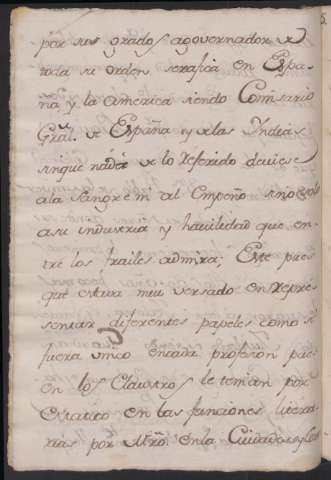 por sus grados a governador de
toda su orden serafica en Espa-
ña, y la America siendo Comisario
Gral. de España y de las Indias
sin que nada de lo referido deviese
a la sangre ni al Empeño sino solo
a su industria y havilidad que en-
tre los frailes admira; Este pues
que estava muy versado en repre-
sentar diferentes papeles como si
fuera unico en cada profesion pues
en los Claustros le tenian por
Estatico en las funciones litera-
rias por Mtro. en la